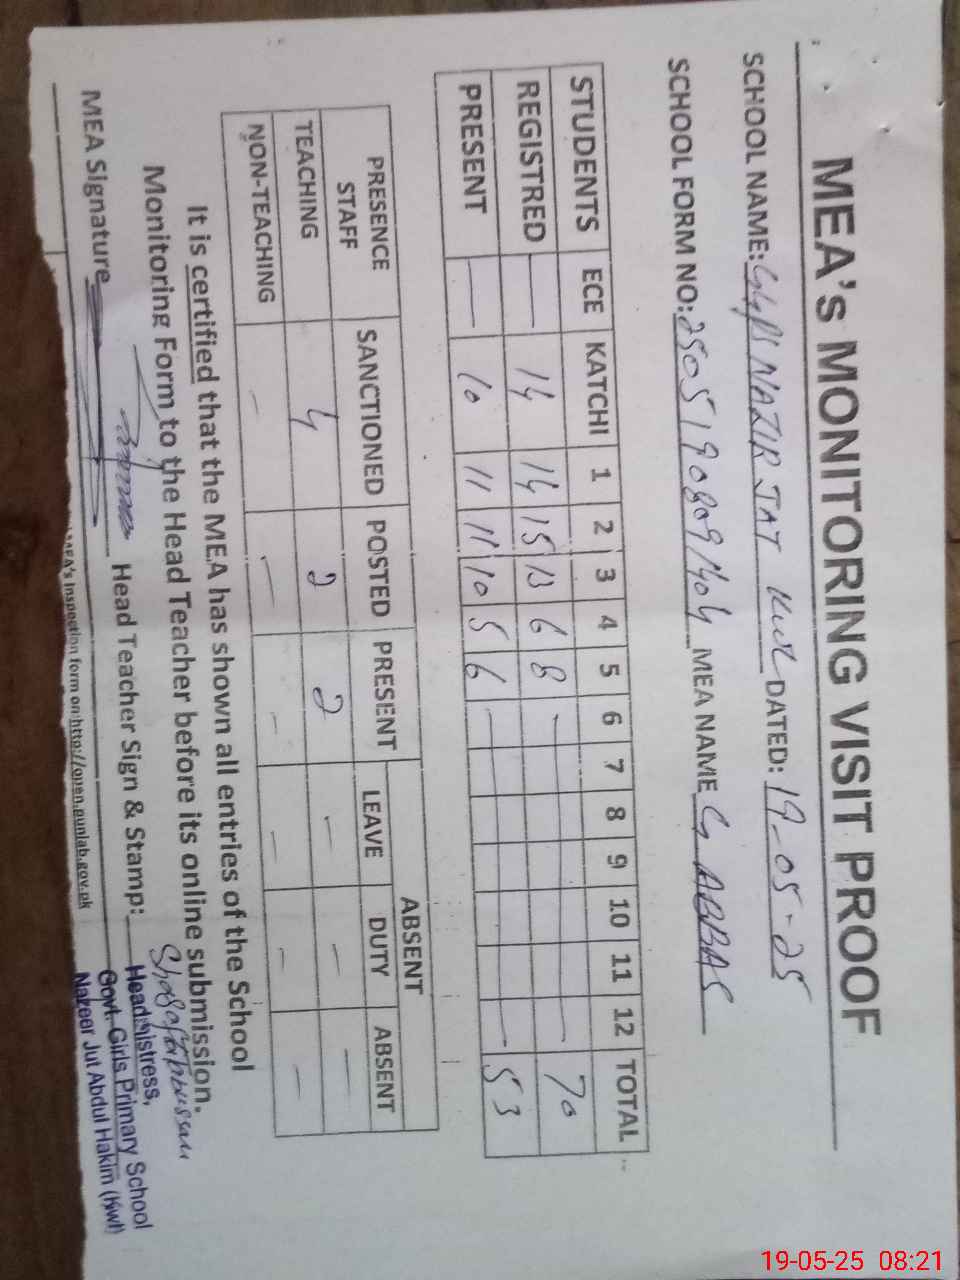 MEA's MONITORING VISIT PROOF
SCHOOL NAME: NAZIR JAT Kwl DATED: 19-05-25
SCHOOL FORM NO: 25051908091404 MEA NAME G ABBAS
STUDENTS ECE KATCHI 1 2 3 4 5 6 7 8 9 10 11 12 TOTAL
REGISTRED — 14 14 15 13 6 8 — 70
PRESENT — 10 11 11 10 5 6 — 53
ABSENT
PRESENCE STAFF SANCTIONED POSTED PRESENT LEAVE DUTY ABSENT
TEACHING 4 2 2 — — —
NON-TEACHING — — — — — —
It is certified that the MEA has shown all entries of the School
Monitoring Form to the Head Teacher before its online submission.
MEA Signature Head Teacher Sign & Stamp:
Headmistress,
Govt. Girls Primary School
Nazeer Jut Abdul Hakim (Kwl)
MEA's Inspection form on:http://open.punjab.gov.pk
19-05-25 08:21